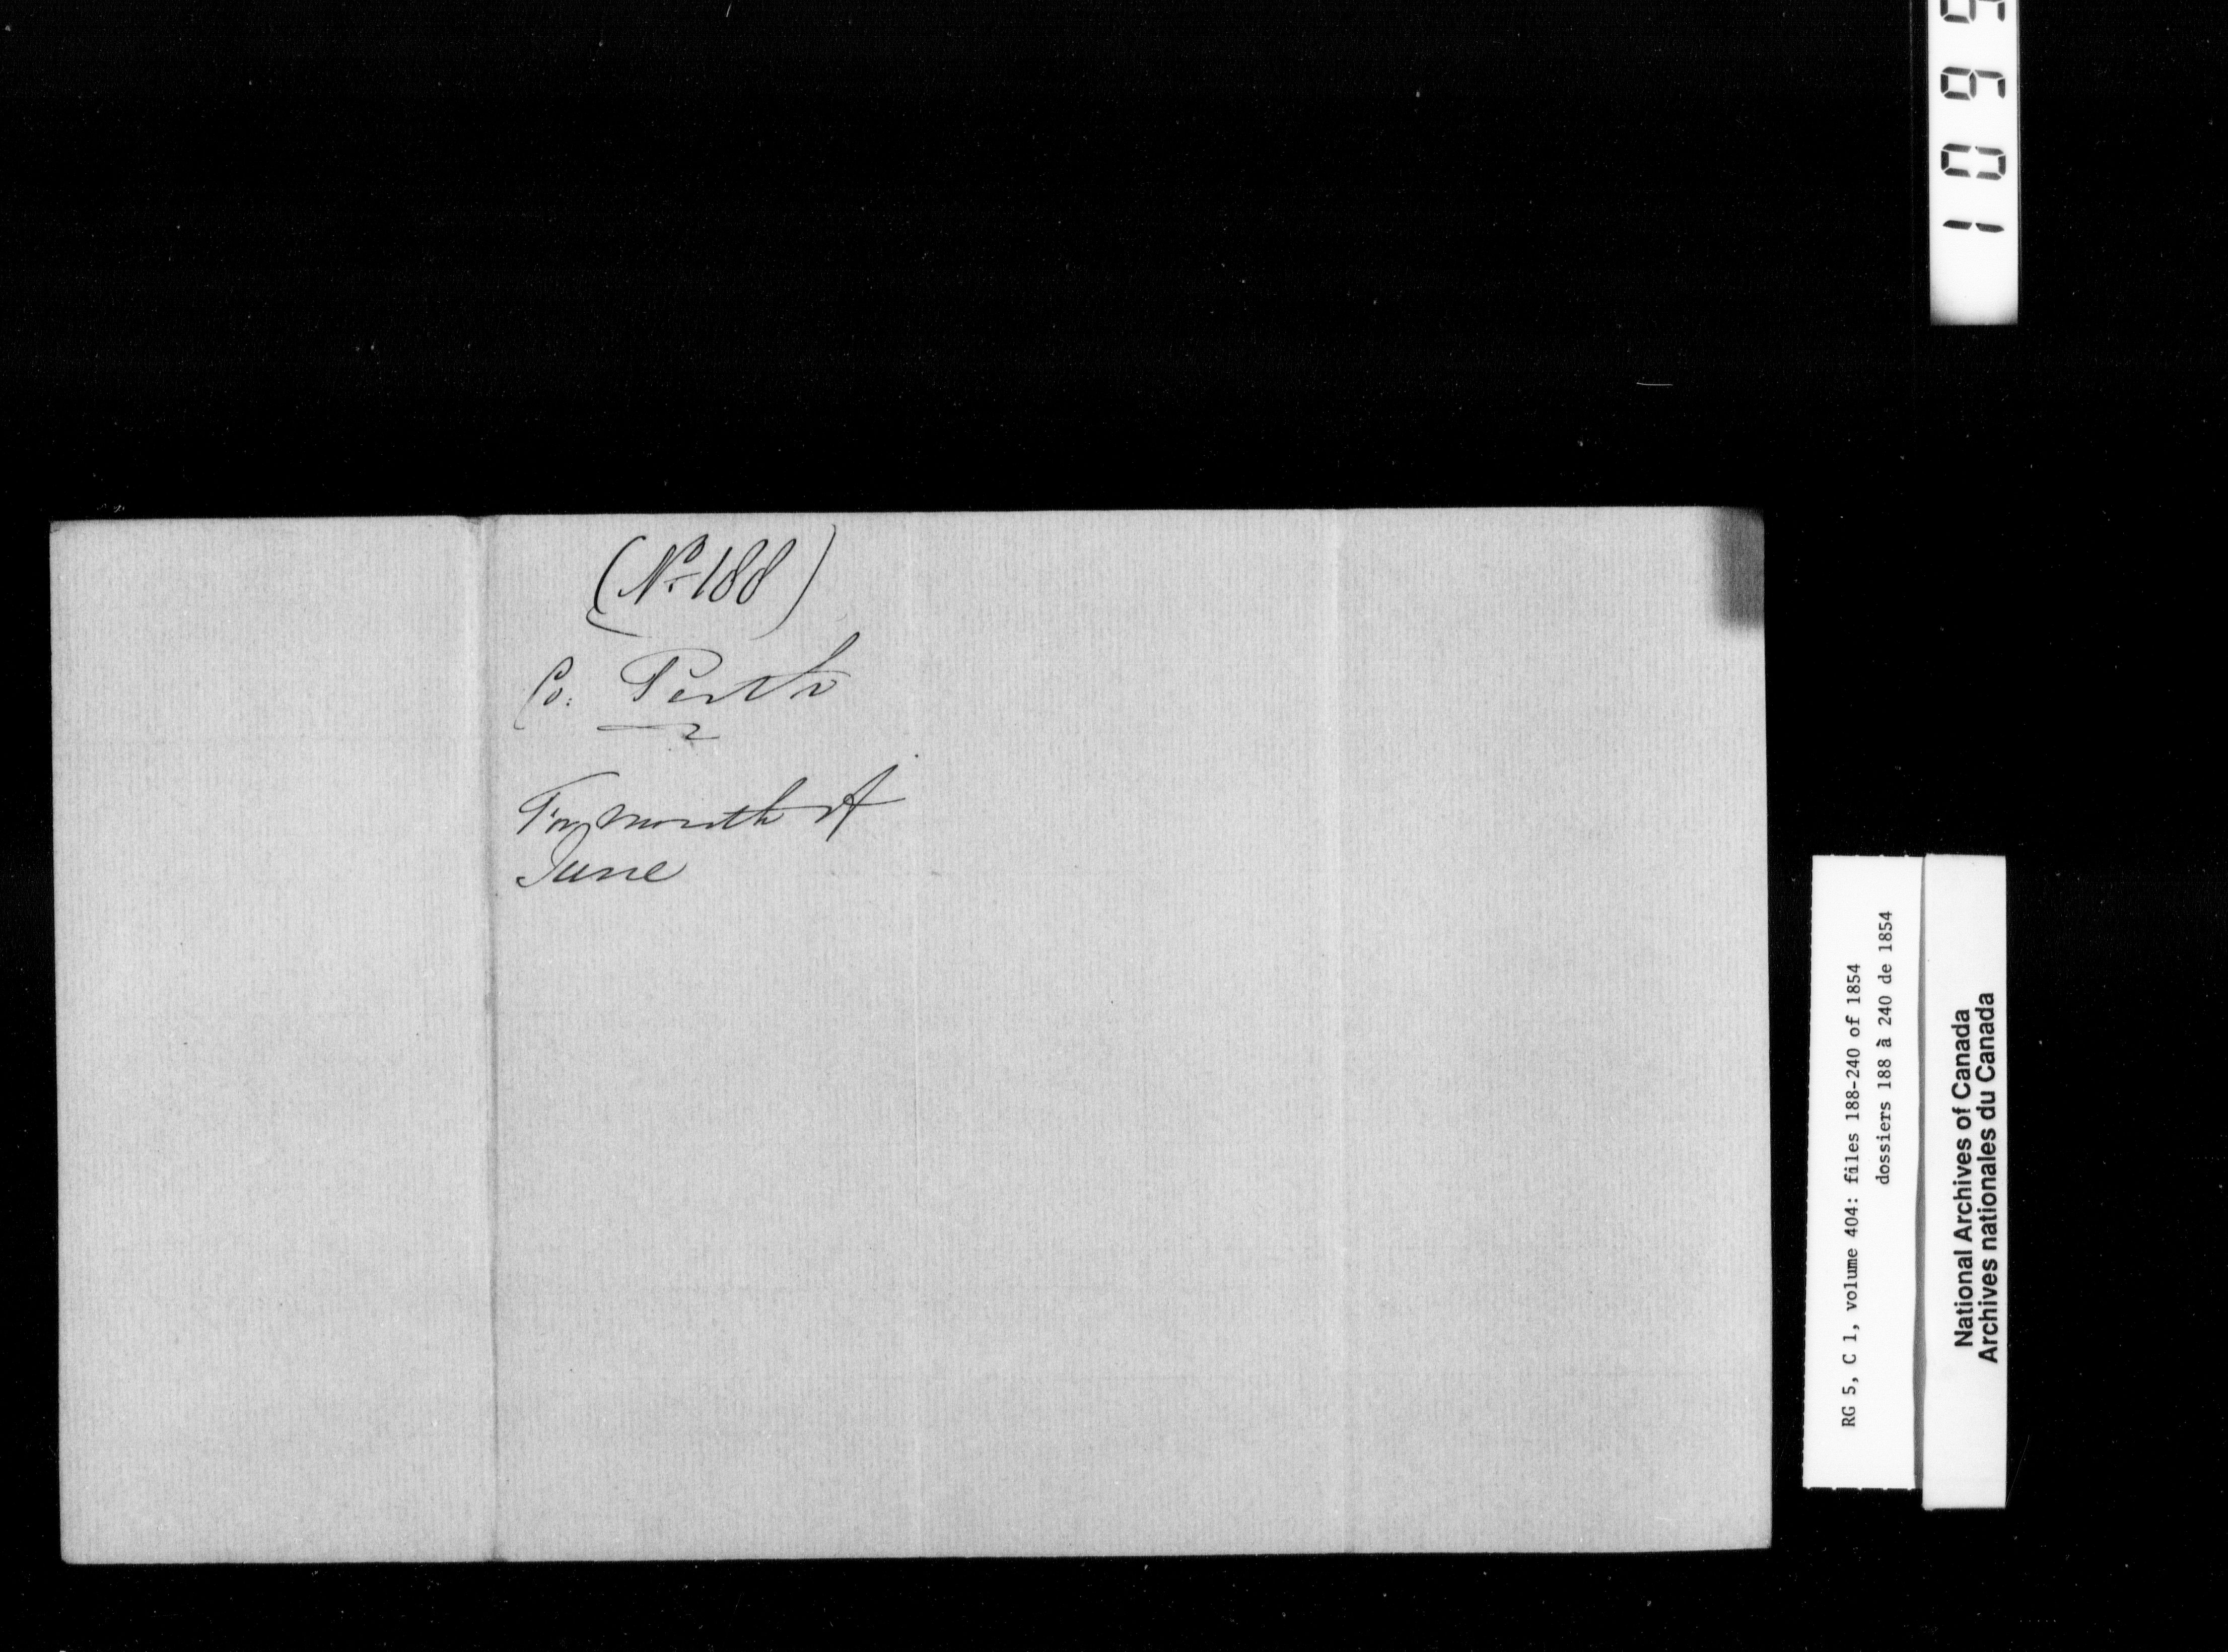 (No. 188)
Co: Perth
For month of
June
1099
RG 5, C 1, volume 404: files 188-240 of 1854
dossiers 188 à 240 de 1854
National Archives of Canada
Archives nationales du Canada